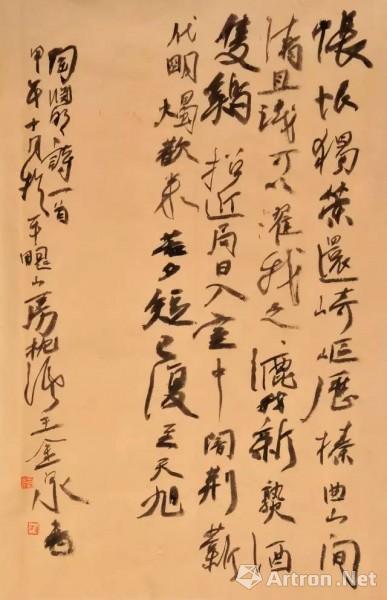 悵恨獨策還崎嶇歷榛曲山間
清且淺可以濯我足漉我新熟酒
隻鷄招近局日入室中闇荆薪
代明燭歡來苦夕短已復至天旭
陶淵明詩一首
甲年十月於平山房王金泉書
Artron.Net